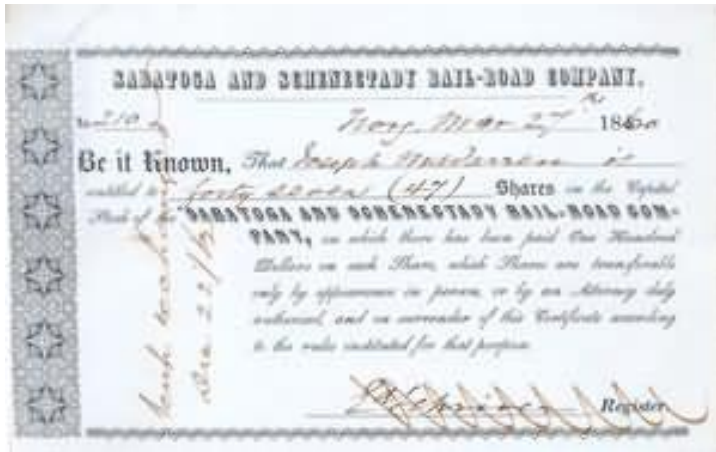 SARATOGA AND SCHENECTADY RAIL-ROAD COMPANY.
No 210 Troy, Mar 27th 1860
Be it Known, That Joseph M. Warren is
entitled to forty seven (47) Shares in the Capital
Stock of the SARATOGA AND SCHENECTADY RAIL-ROAD COM-
PANY, on which there has been paid One Hundred
Dollars on each Share, which Shares are transferable
only by appearance in person, or by an Attorney duly
authorized, and on surrender of this Certificate according
to the rules instituted for that purpose.
Register.
Dec 22/